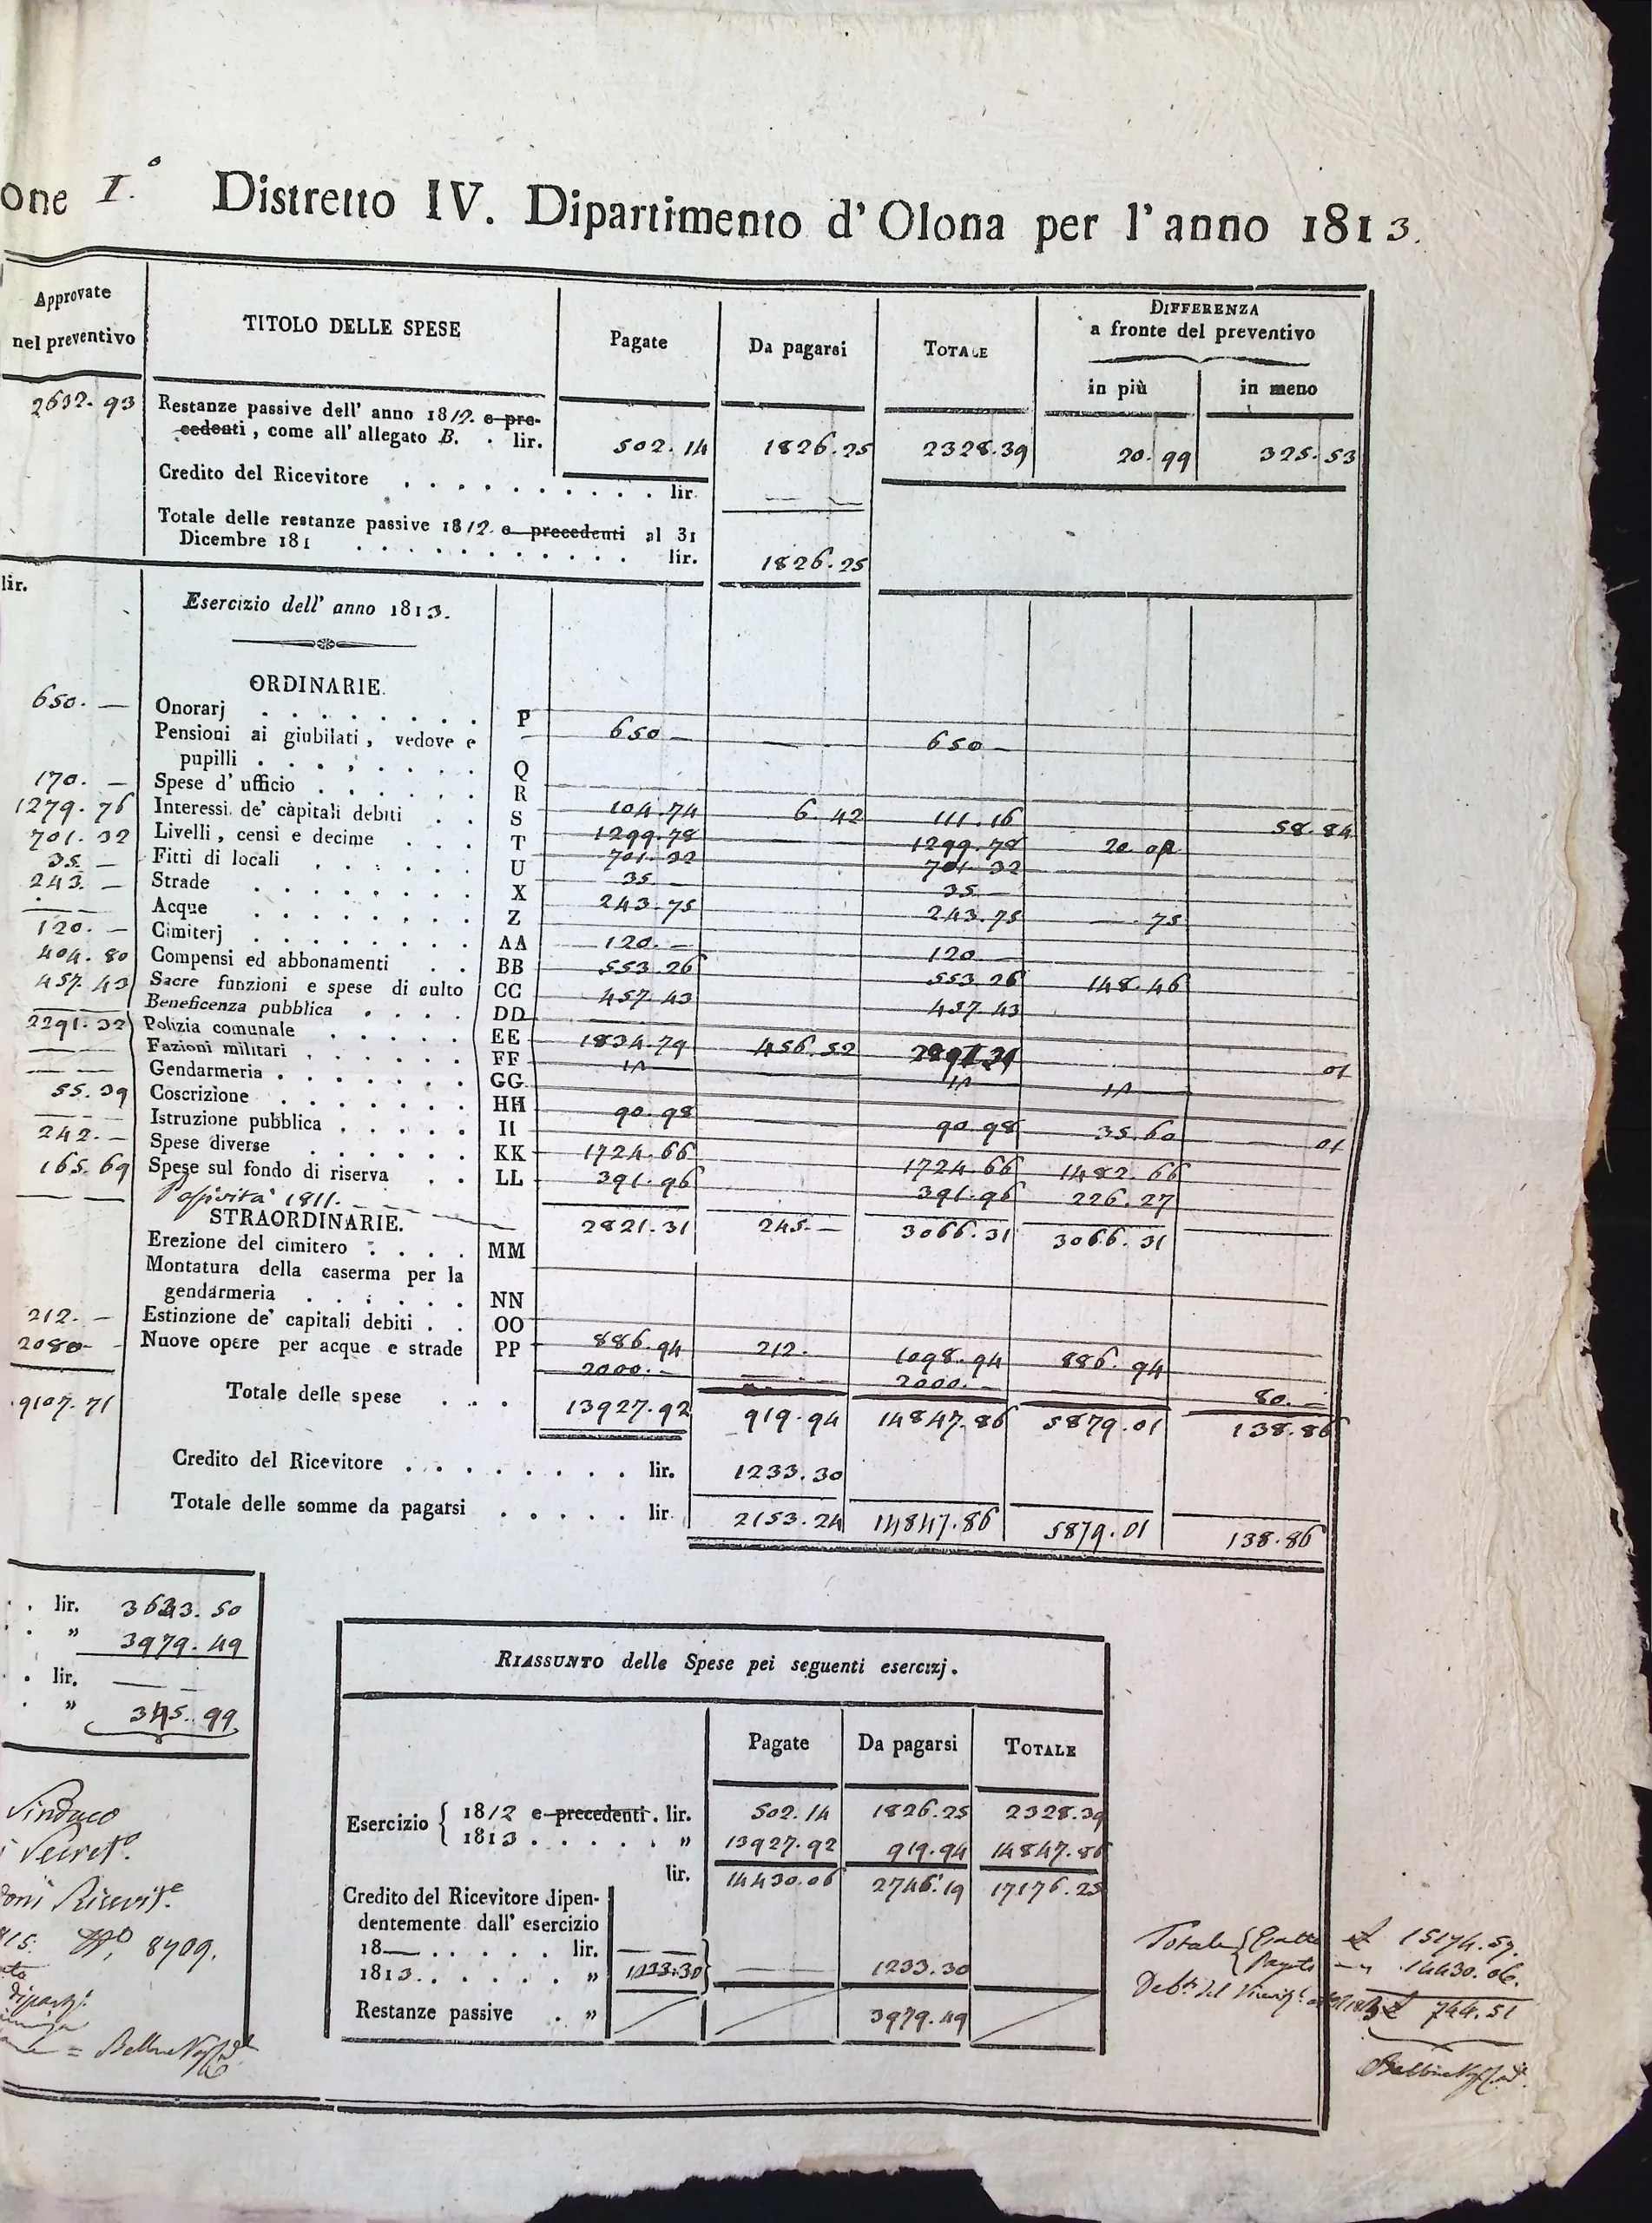 one I.° Distretto IV. Dipartimento d' Olona per l' anno 1813.
Approvate nel preventivo | TITOLO DELLE SPESE | Pagate | Da pagarsi | TOTALE | DIFFERENZA a fronte del preventivo
in più | in meno
2632. 93 Restanze passive dell' anno 1812. e pre-
cedenti, come all' allegato B. . lir. 502. 14 1826. 25 2328. 39 20. 99 325. 53
Credito del Ricevitore . . . . . . . . . . lir. — —
Totale delle restanze passive 1812. e precedenti al 31
Dicembre 181 . . . . . . . . . . . lir. 1826. 25
lir.
Esercizio dell' anno 1813.
ORDINARIE.
650. — Onorarj . . . . . . . . P 650 — — — 650 —
Pensioni ai giubilati, vedove e
pupilli . . . . . . . . Q
170. — Spese d' ufficio . . . . . . R 104. 74 6. 42 111. 16 58. 84
1279. 76 Interessi de' capitali debiti . . S 1299. 78 1299. 78 20. 02
701. 32 Livelli, censi e decime . . . T 701. 32 701. 32
35. — Fitti di locali . . . . . . U 35. — 35. —
243. — Strade . . . . . . . . X 243. 75 243. 75 — 75
— Acque . . . . . . . . Z
120. — Cimiterj . . . . . . . . AA 120. — 120. —
404. 80 Compensi ed abbonamenti . . BB 553. 26 553. 26 148. 46
457. 43 Sacre funzioni e spese di culto CC 457. 43 457. 43
Beneficenza pubblica . . . . DD
2291. 32 Polizia comunale . . . . . . EE 1834. 79 456. 52 01
— — Fazioni militari . . . . . . FF 14 14 14
— — Gendarmeria . . . . . . . GG
55. 39 Coscrizione . . . . . . . HH 90. 98 90. 98 35. 60 01
— — Istruzione pubblica . . . . . II
242. — Spese diverse . . . . . . KK 1724. 66 1724. 66 1482. 66
165. 69 Spese sul fondo di riserva . . LL 391. 96 391. 96 226. 27
— — Passività 1811. — — — 2821. 31 245. — 3066. 31 3066. 31
STRAORDINARIE.
Erezione del cimitero . . . . MM
Montatura della caserma per la
gendarmeria . . . . . . NN
212. — Estinzione de' capitali debiti . . OO 886. 94 212. 1098. 94 886. 94
2080. - Nuove opere per acque e strade PP 2000. — 2000. — 80. —
9107. 71 Totale delle spese . . . 13927. 92 919. 94 14847. 86 5879. 01 138. 86
Credito del Ricevitore . . . . . . . . lir. 1233. 30
Totale delle somme da pagarsi . . . . . lir. 2153. 24 14847. 86 5879. 01 138. 86
. . lir. 3633. 50
. . » 3979. 49
. . lir. — —
. » 345. 99
RIASSUNTO delle Spese pei seguenti esercizj.
Pagate | Da pagarsi | TOTALE
Esercizio { 1812 e precedenti . lir. 502. 14 1826. 25 2328. 39
1813 . . . . . » 13927. 92 919. 94 14847. 86
lir. 14430. 06 2746. 19 17176. 25
Credito del Ricevitore dipen-
dentemente dall' esercizio
18— . . . . . lir. — —
1813 . . . . . » 1233. 30 — — 1233. 30
Restanze passive . » 3979. 49
Sindaco
Secret.°
Ricevit.e
815. N.° 8709.
Totale { Esatte £ 15174. 57.
Pagate — „ 14430. 06.
Deb.° del Ricevit.e £ 744. 51